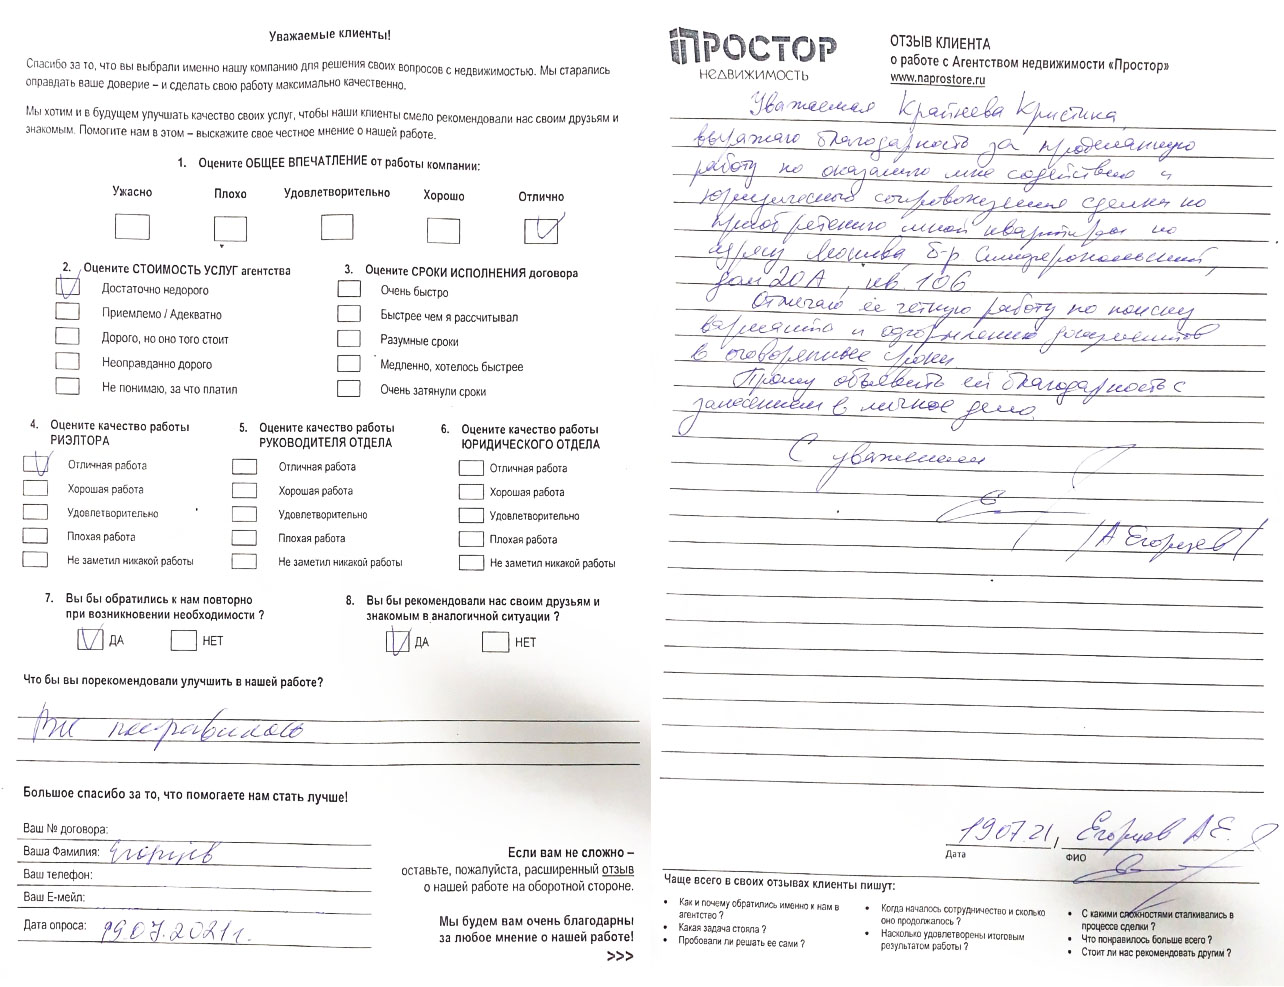 Уважаемые клиенты!
Спасибо за то, что вы выбрали именно нашу компанию для решения своих вопросов с недвижимостью. Мы старались
оправдать ваше доверие – и сделать свою работу максимально качественно.
Мы хотим и в будущем улучшать качество своих услуг, чтобы наши клиенты смело рекомендовали нас своим друзьям и
знакомым. Помогите нам в этом – выскажите свое честное мнение о нашей работе.
1. Оцените ОБЩЕЕ ВПЕЧАТЛЕНИЕ от работы компании:
Ужасно Плохо Удовлетворительно Хорошо Отлично
2. Оцените СТОИМОСТЬ УСЛУГ агентства
Достаточно недорого
Приемлемо / Адекватно
Дорого, но оно того стоит
Неоправданно дорого
Не понимаю, за что платил
3. Оцените СРОКИ ИСПОЛНЕНИЯ договора
Очень быстро
Быстрее чем я рассчитывал
Разумные сроки
Медленно, хотелось быстрее
Очень затянули сроки
4. Оцените качество работы
РИЭЛТОРА
Отличная работа
Хорошая работа
Удовлетворительно
Плохая работа
Не заметил никакой работы
5. Оцените качество работы
РУКОВОДИТЕЛЯ ОТДЕЛА
Отличная работа
Хорошая работа
Удовлетворительно
Плохая работа
Не заметил никакой работы
6. Оцените качество работы
ЮРИДИЧЕСКОГО ОТДЕЛА
Отличная работа
Хорошая работа
Удовлетворительно
Плохая работа
Не заметил никакой работы
7. Вы бы обратились к нам повторно
при возникновении необходимости ?
ДА НЕТ
8. Вы бы рекомендовали нас своим друзьям и
знакомым в аналогичной ситуации ?
ДА НЕТ
Что бы вы порекомендовали улучшить в нашей работе?
Все понравилось
Большое спасибо за то, что помогаете нам стать лучше!
Ваш № договора:
Ваша Фамилия: Егорцев
Ваш телефон:
Ваш Е-мейл:
Дата опроса: 19.07.2021 г.
Если вам не сложно –
оставьте, пожалуйста, расширенный отзыв
о нашей работе на оборотной стороне.
Мы будем вам очень благодарны
за любое мнение о нашей работе!
>>>
ПРОСТОР
НЕДВИЖИМОСТЬ
ОТЗЫВ КЛИЕНТА
о работе с Агентством недвижимости «Простор»
www.naprostore.ru
Уважаемая Крайнева Кристина,
выражаю благодарность за проделанную
работу по оказанию мне содействия и
юридического сопровождения сделки по
приобретению мной квартиры по
адресу Москва, б-р Симферопольский,
дом 20А, кв. 106
Отмечаю её чёткую работу по поиску
варианта и оформлению документов
в оговоренные сроки.
Прошу объявить ей благодарность с
занесением в личное дело.
С уважением
/А Егорцев/
19.07.21, Егорцев А.Е.
Дата ФИО
Чаще всего в своих отзывах клиенты пишут:
• Как и почему обратились именно к нам в
агентство ?
• Какая задача стояла ?
• Пробовали ли решать ее сами ?
• Когда началось сотрудничество и сколько
оно продолжалось ?
• Насколько удовлетворены итоговым
результатом работы ?
• С какими сложностями сталкивались в
процессе сделки ?
• Что понравилось больше всего ?
• Стоит ли нас рекомендовать другим ?